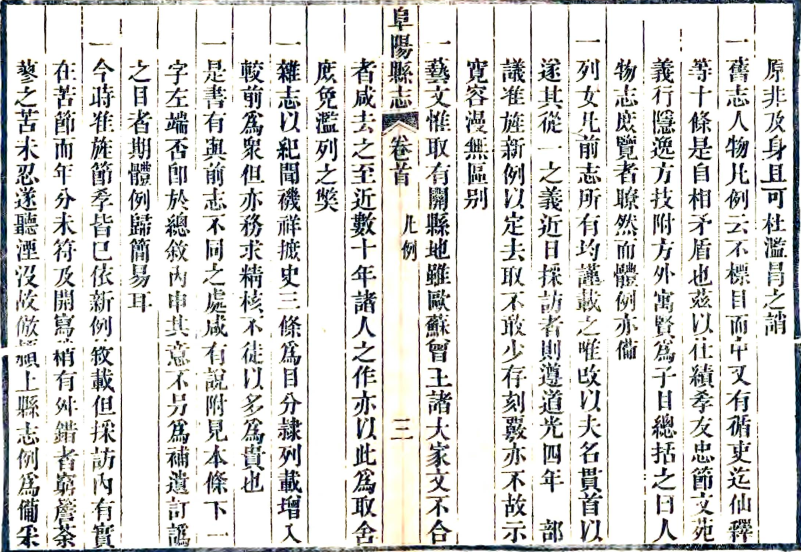 原非及身且可杜濫冒之誚
一舊志人物凡例云不標目而中又有循吏迄仙釋
等十條是自相矛盾也茲以仕績孝友忠節文苑
義行隱逸方技附方外寓賢爲子目總括之曰人
物志庶覽者瞭然而體例亦備
一列女凡前志所有均謹載之唯改以夫名貫首以
遂其從一之義近日採訪者則遵道光四年 部
議准旌新例以定去取不敢少存刻覈亦不故示
寬容漫無區別
阜陽縣志 卷首 凡例 三
一藝文惟取有關縣地雖歐蘇曾王諸大家文不合
者咸去之至近數十年諸人之作亦以此爲取舍
庶免濫列之獘
一雜志以紀聞禨祥摭史三條爲目分隷列載增入
較前爲衆但亦務求精核不徒以多爲貴也
一是書有與前志不同之處咸有說附見本條下一
字左端否卽於總敘內申其意不另爲補遺訂譌
之目者期體例歸簡易耳
一今時准旌節孝皆已依新例敘載但採訪內有實
在苦節而年分未符及開寫稍有舛錯者窮簷荼
蓼之苦未忍遂聽湮沒故倣潁上縣志例爲備采